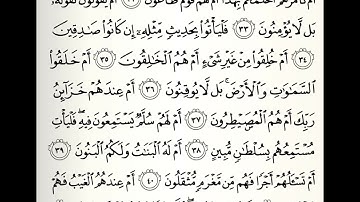 أَمْ تَأْمُرُهُمْ أَحْلَٰمُهُم بِهَٰذَآ أَمْ هُمْ قَوْمٌ طَاغُونَ ٣٢ أَمْ يَقُولُونَ تَقَوَّلَهُۥ
بَل لَّا يُؤْمِنُونَ ٣٣ فَلْيَأْتُوا۟ بِحَدِيثٍ مِّثْلِهِۦٓ إِن كَانُوا۟ صَٰدِقِينَ
٣٤ أَمْ خُلِقُوا۟ مِنْ غَيْرِ شَىْءٍ أَمْ هُمُ ٱلْخَٰلِقُونَ ٣٥ أَمْ خَلَقُوا۟
ٱلسَّمَٰوَٰتِ وَٱلْأَرْضَ ۚ بَل لَّا يُوقِنُونَ ٣٦ أَمْ عِندَهُمْ خَزَآئِنُ
رَبِّكَ أَمْ هُمُ ٱلْمُصَۣيْطِرُونَ ٣٧ أَمْ لَهُمْ سُلَّمٌ يَسْتَمِعُونَ فِيهِ ۖ فَلْيَأْتِ
مُسْتَمِعُهُم بِسُلْطَٰنٍ مُّبِينٍ ٣٨ أَمْ لَهُ ٱلْبَنَٰتُ وَلَكُمُ ٱلْبَنُونَ ٣٩
أَمْ تَسْـَٔلُهُمْ أَجْرًا فَهُم مِّن مَّغْرَمٍ مُّثْقَلُونَ ٤٠ أَمْ عِندَهُمُ ٱلْغَيْبُ فَهُمْ